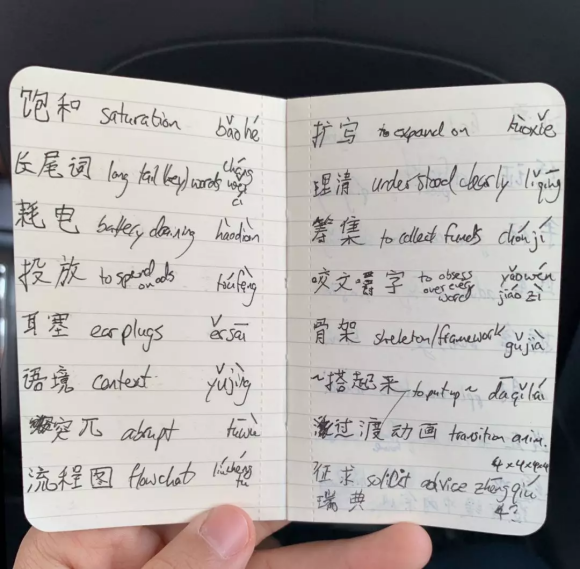 饱和 saturation bǎohé
长尾词 long tail (key) words cháng wěi cí
耗电 battery draining hàodiàn
投放 to spend on ads tóufàng
耳塞 ear plugs ěrsāi
语境 context yǔjìng
突兀 abrupt tūwù
流程图 flowchat liúchéng tú
扩写 to expand on kuòxiě
理清 understood clearly lǐqīng
筹集 to collect funds chóují
咬文嚼字 to obsess over every word yǎowén jiáo zì
骨架 skeleton/framework gǔjià
~搭起来 to put up ~ dāqǐlái
过渡动画 transition anim.
征求 solicit advice zhēngqiú
瑞典